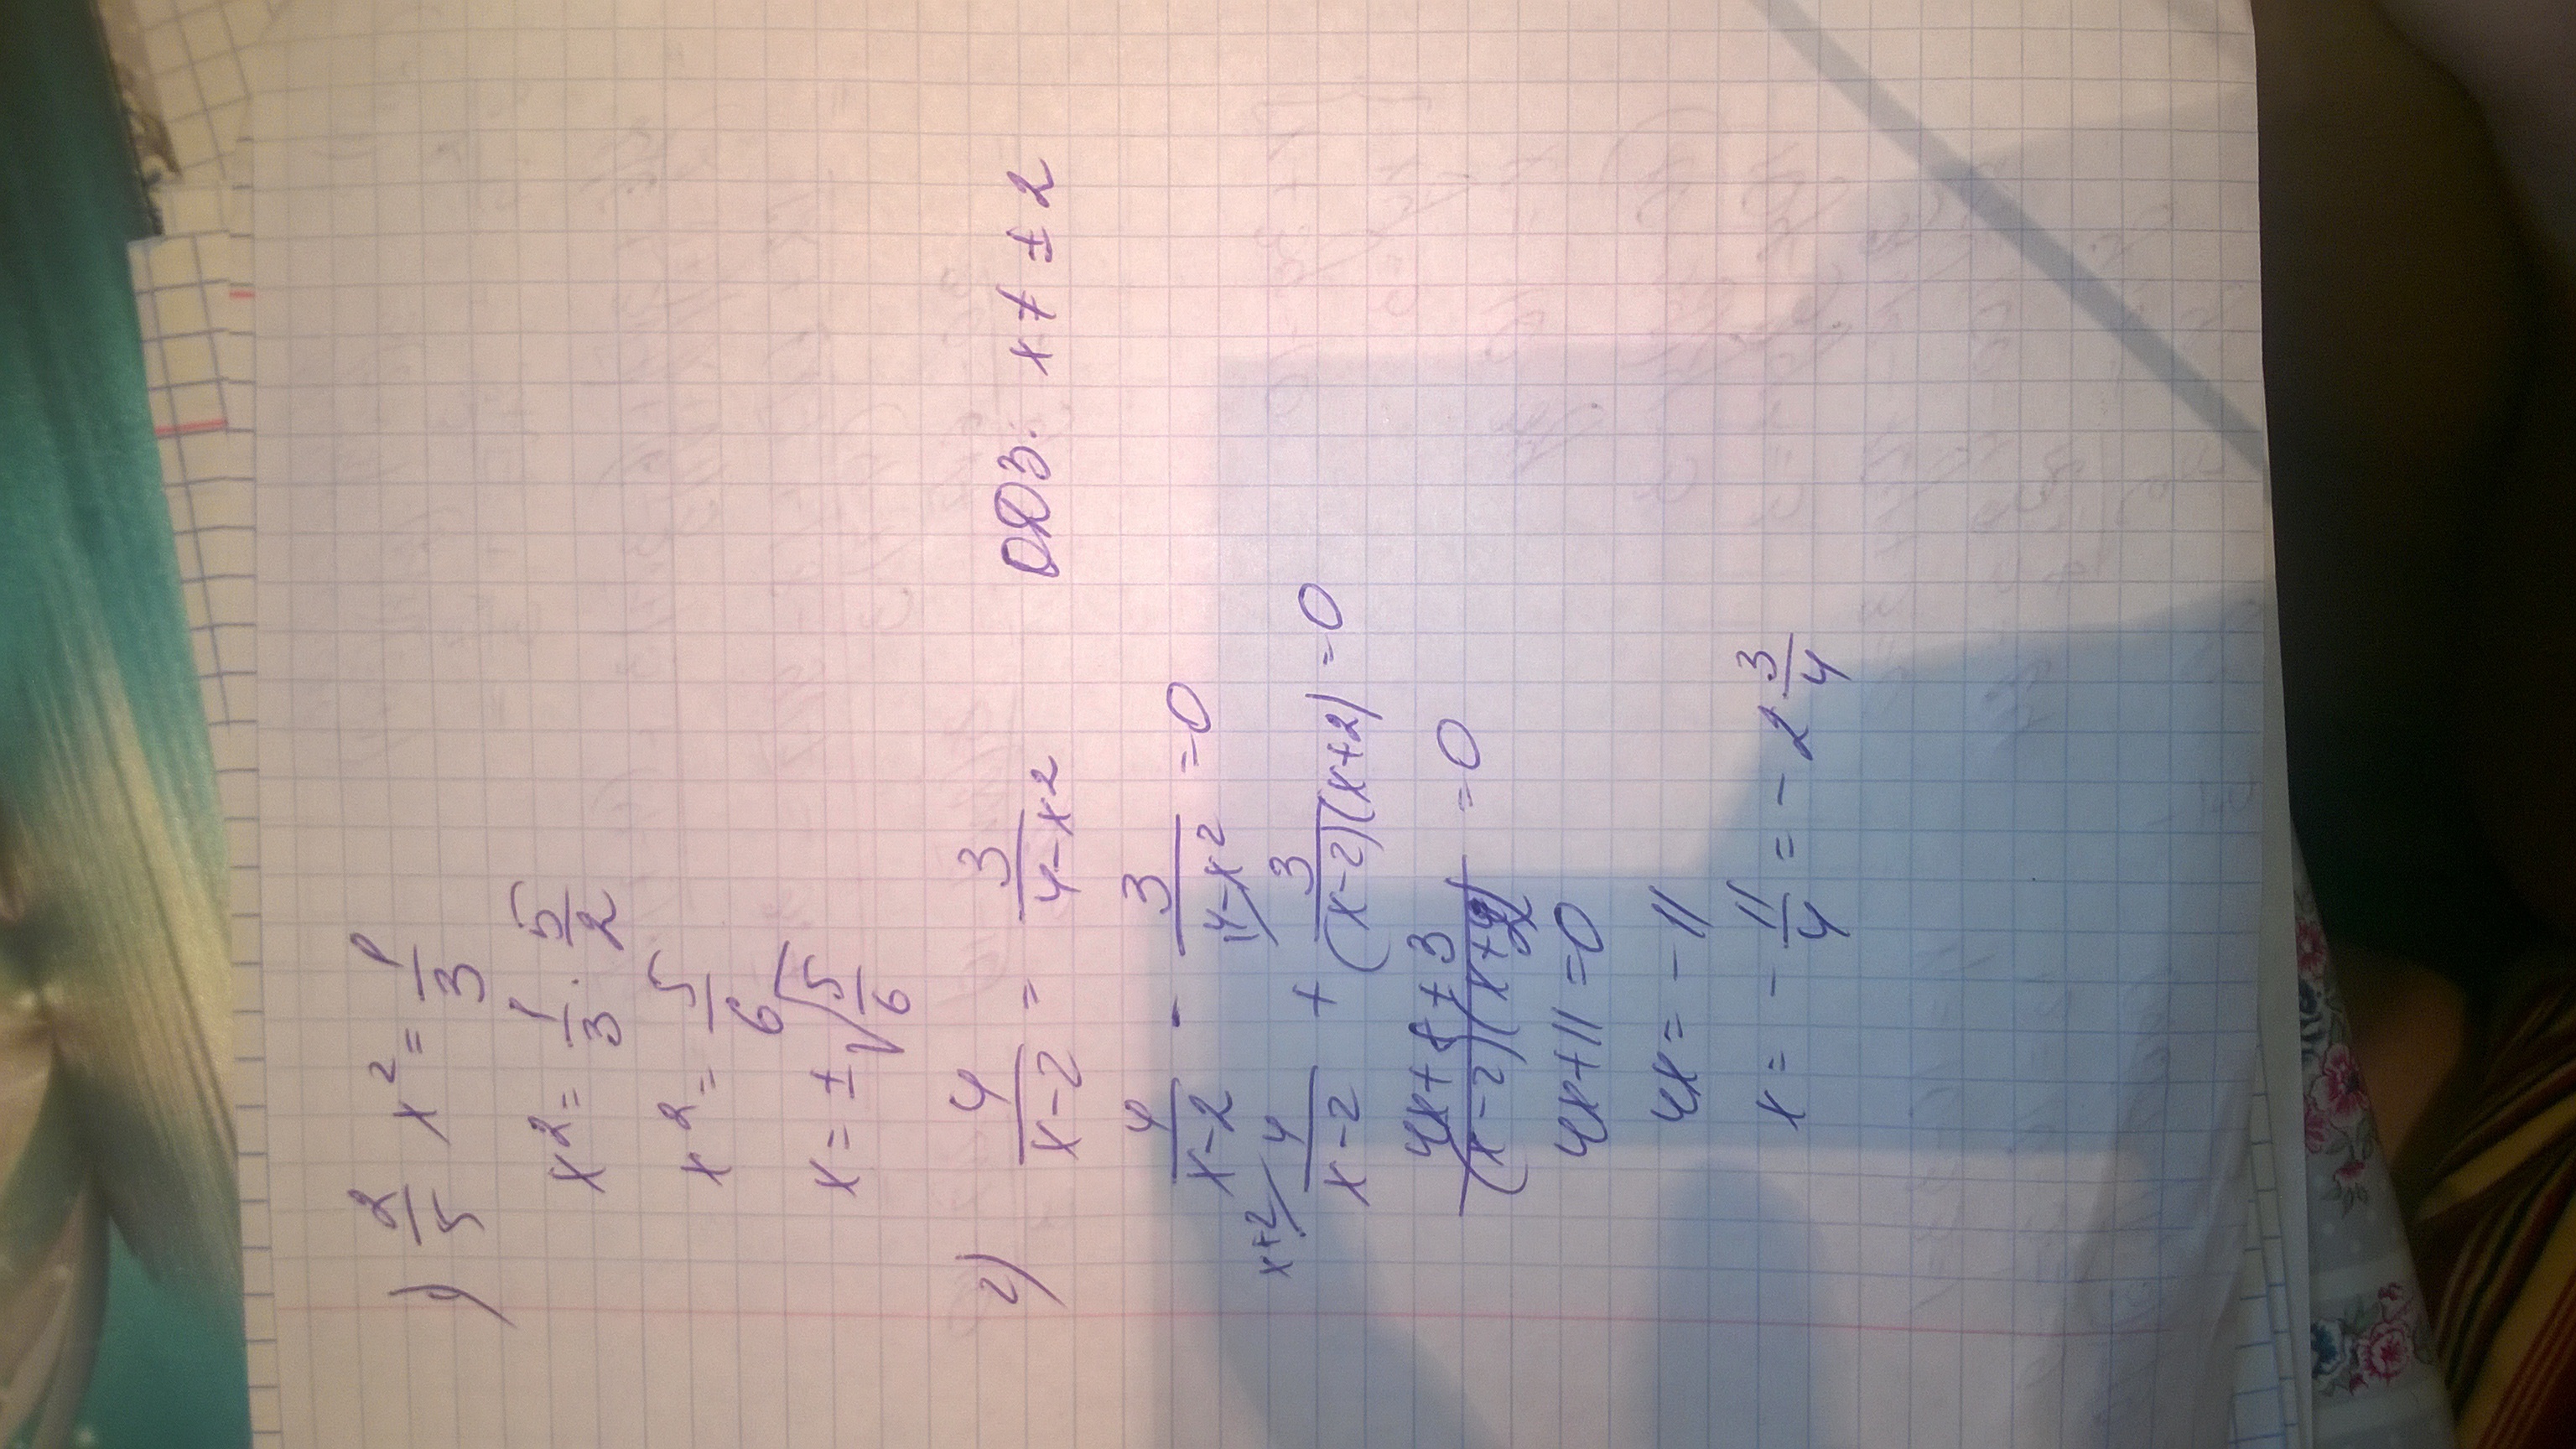 1) 2/5 x² = 1/3
x² = 1/3 · 5/2
x² = 5/6
x = ± √5/6
2) 4/x-2 = 3/4-x² ОДЗ: x ≠ ± 2
4/x-2 - 3/4-x² = 0
x+2/ 4/x-2 + 3/(x-2)(x+2) = 0
4x+8+3/(x-2)(x+2) = 0
4x+11=0
4x = -11
x = - 11/4 = - 2 3/4